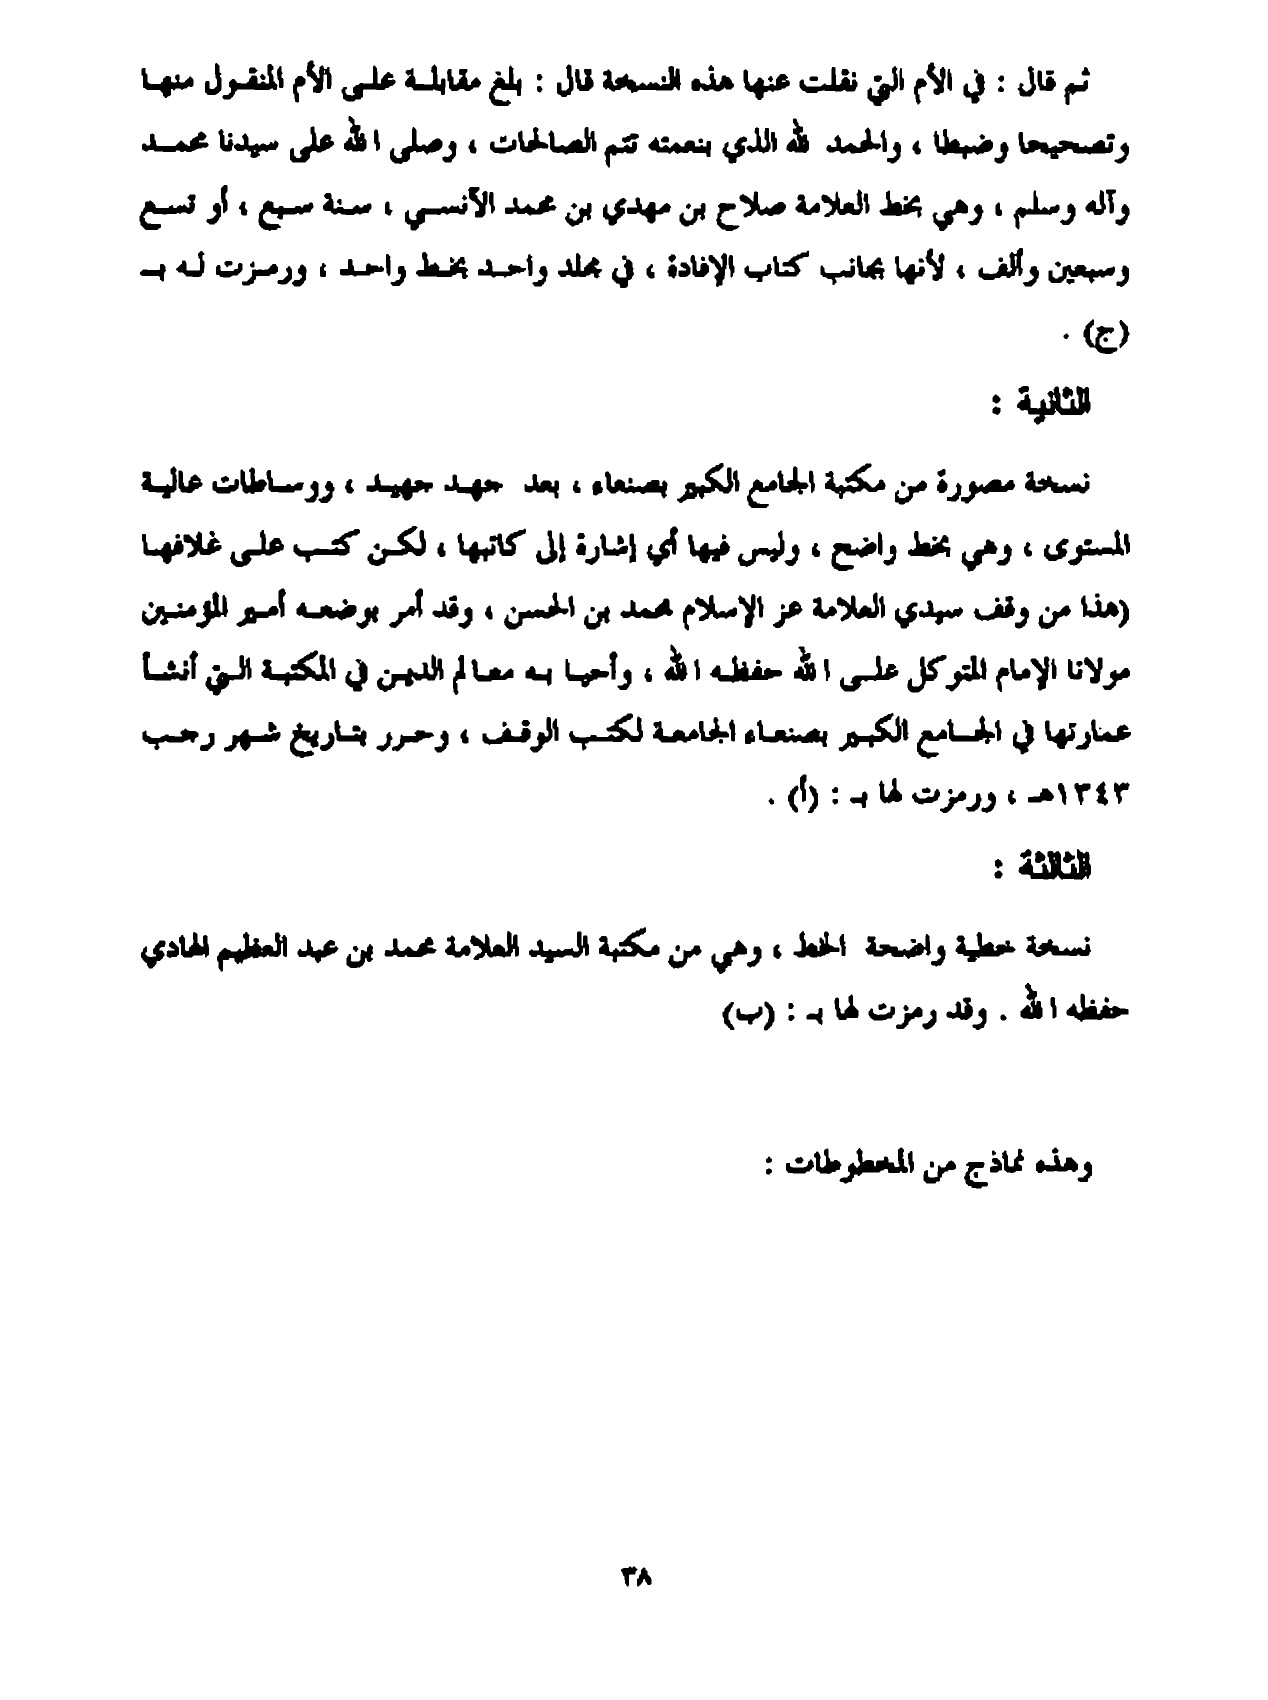 ثم قال : في الأم التي نقلت عنها هذه النسخة قال : بلغ مقابلة على الأم المنقول منها
وتصحيحا وضبطا ، والحمد لله الذي بنعمته تتم الصالحات ، وصلى الله على سيدنا محمد
وآله وسلم ، وهي بخط العلامة صلاح بن مهدي بن محمد الآنسي ، سنة سبع ، أو تسع
وسبعين وألف ، لأنها بجانب كتاب الإفادة ، في مجلد واحد بخط واحد ، ورمزت له بـ
(ج) .
الثانية :
نسخة مصورة من مكتبة الجامع الكبير بصنعاء ، بعد جهد جهيد ، ووساطات عالية
المستوى ، وهي بخط واضح ، وليس فيها أي إشارة إلى كاتبها ، لكن كتب على غلافها
(هذا من وقف سيدي العلامة عز الإسلام محمد بن الحسن ، وقد أمر بوضعه أمير المؤمنين
مولانا الإمام المتوكل على الله حفظه الله ، وأحيا به معالم الدين في المكتبة التي أنشأ
عمارتها في الجامع الكبير بصنعاء الجامعة لكتب الوقف ، وحرر بتاريخ شهر رجب
١٣٤٣هـ ، ورمزت لها بـ : (أ) .
الثالثة :
نسخة خطية واضحة الخط ، وهي من مكتبة السيد العلامة محمد بن عبد العظيم الهادي
حفظه الله . وقد رمزت لها بـ : (ب)
وهذه نماذج من المخطوطات :
٣٨